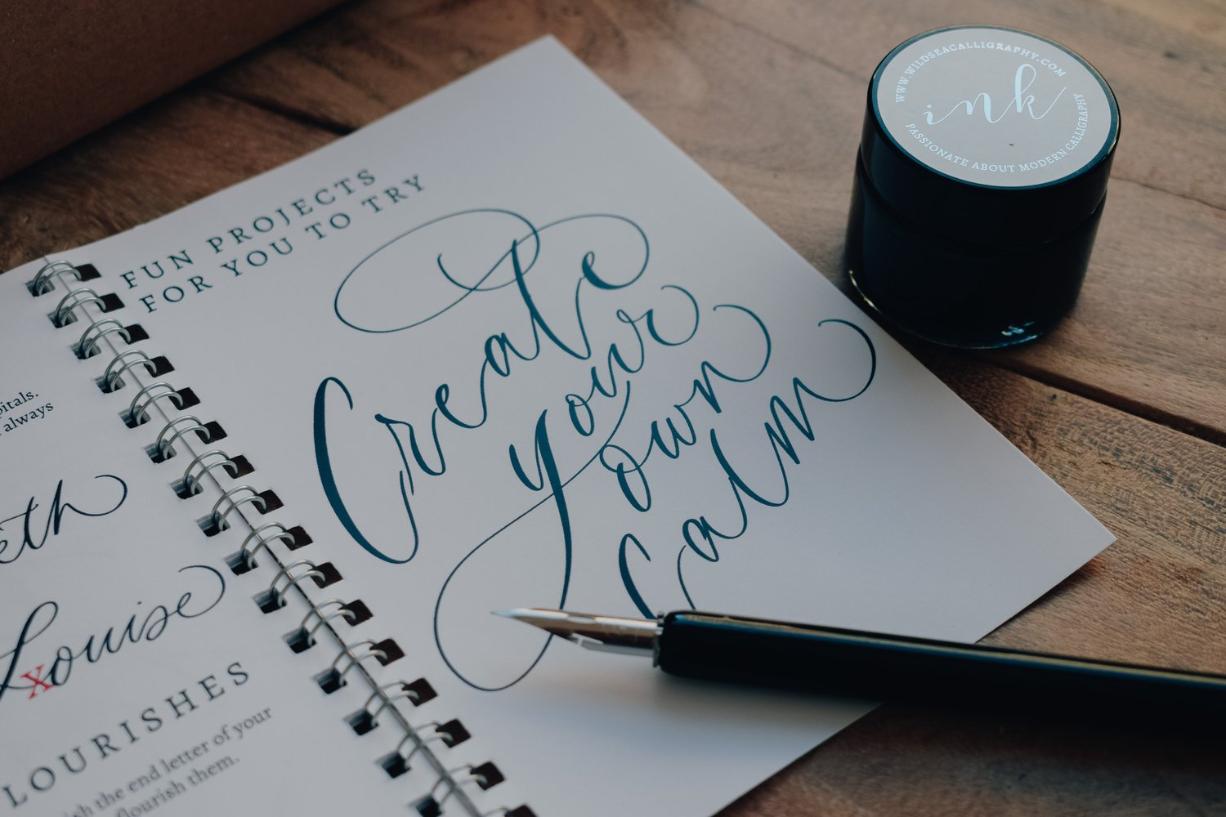 pitals.
always
eth
Louise
x
LOURISHES
the end letter of your
flourish them.
FUN PROJECTS
FOR YOU TO TRY
Create
your
own
calm
WWW.WILDSEACALLIGRAPHY.COM
ink
PASSIONATE ABOUT MODERN CALLIGRAPHY